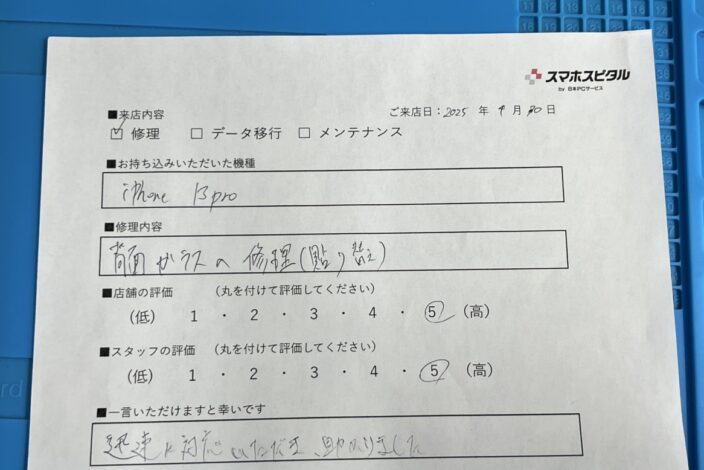 スマホスピタル
by 日本PCサービス
■来店内容
ご来店日：2025 年 9 月 30 日
☑ 修理 □ データ移行 □ メンテナンス
■お持ち込みいただいた機種
iPhone 13 pro
■修理内容
背面ガラスの修理(貼り替え)
■店舗の評価 （丸を付けて評価してください）
（低） 1 ・ 2 ・ 3 ・ 4 ・ 5 （高）
■スタッフの評価 （丸を付けて評価してください）
（低） 1 ・ 2 ・ 3 ・ 4 ・ 5 （高）
■一言いただけますと幸いです
迅速に対応いただき、助かりました